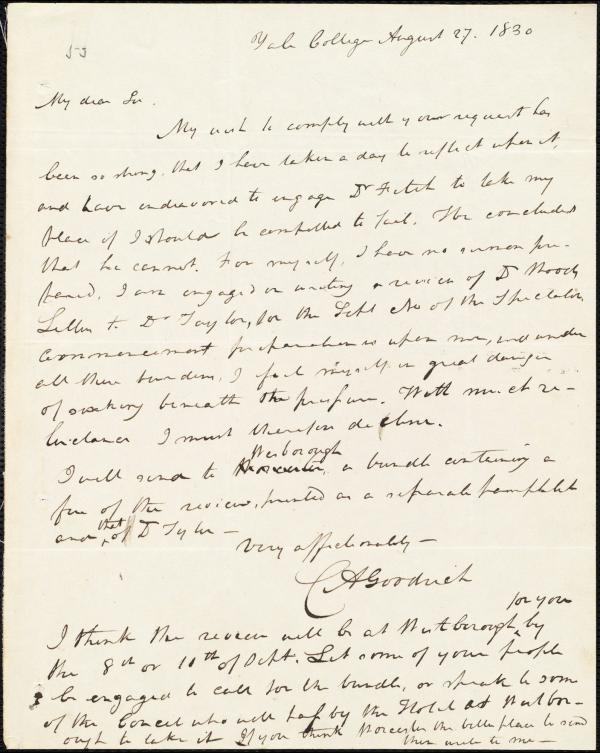 53
Yale College August 27. 1830
My dear Sir.
My wish to comply with your request has
been so strong, that I have taken a day to reflect upon it,
and have endeavored to engage Dr Fitch to take my
place if I should be compelled to fail. He concludes
that he cannot. For myself, I have no sermon pre-
pared, I am engaged in writing a review of Dr Woods
Letters to Dr Taylor, for the Sept No of the Spectator,
commencement preparations upon me, and under
all these burdens, I feel myself in great danger
of sinking beneath the pressure. With much re-
luctance I must therefore decline.
I will send to Westborough a bundle containing a
few of the review, printed as a separate pamphlet
and that of Dr Tyler —
Very affectionately —
C A Goodrich
I think the review will be at Westborough for you by
the 8th or 10th of Sept. Let some of your people
be engaged to call for the bundle, or speak to some
of the Council who will pass by the Hotel at Westbor-
ough to take it If you think Worcester the better place to send
then write to me —